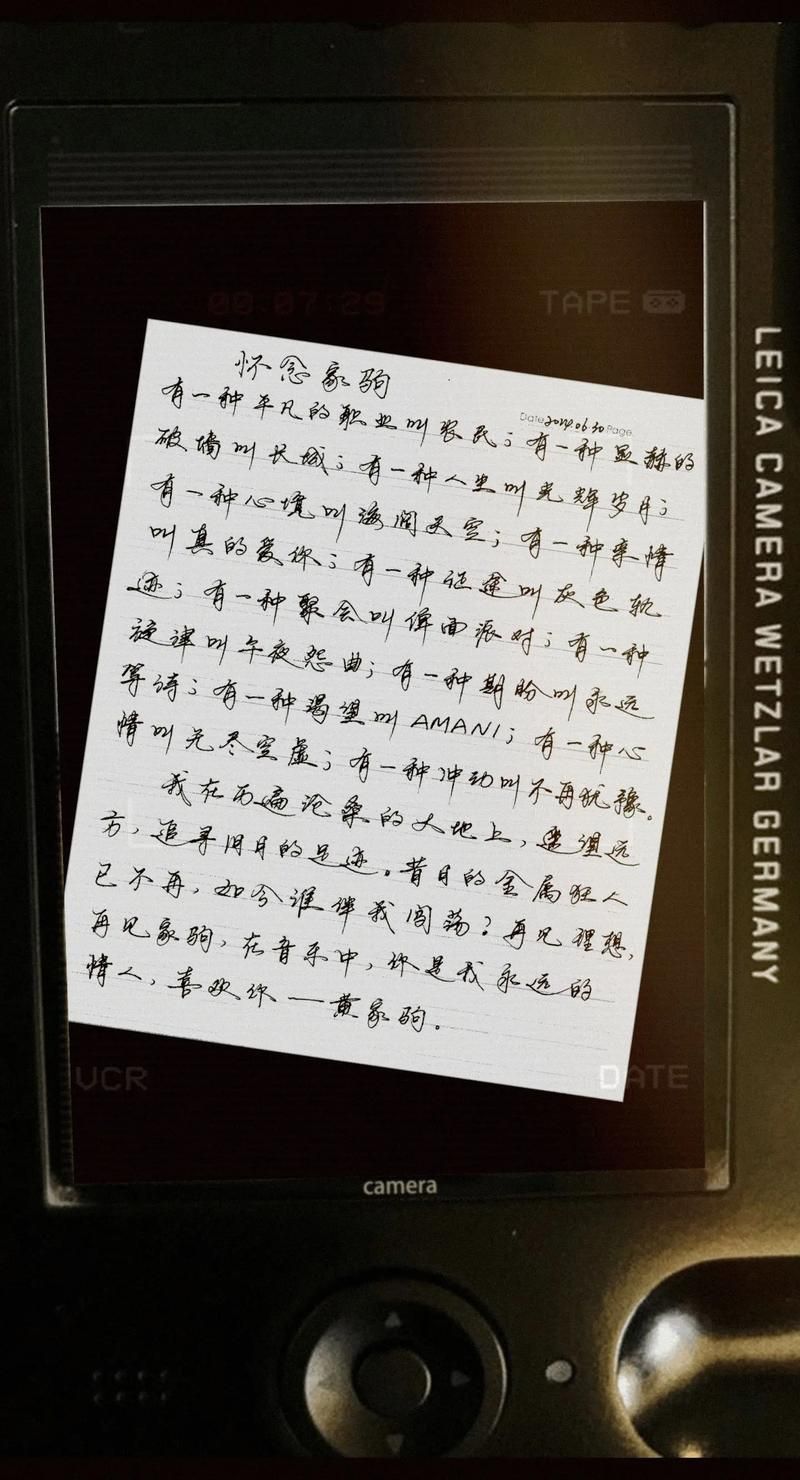 00:07:29
TAPE
怀念家驹
Date 2024.06.30 Page
有一种平凡的职业叫农民；有一种显赫的
破墙叫长城；有一种人生叫光辉岁月；
有一种心境叫海阔天空；有一种亲情
叫真的爱你；有一种征途叫灰色轨
迹；有一种聚会叫俾面派对；有一种
旋律叫午夜怨曲；有一种期盼叫永远
等待；有一种渴望叫AMANI；有一种心
情叫无尽空虚；有一种冲动叫不再犹豫。
我在历遍沧桑的大地上，遥望远
方，追寻旧日的足迹。昔日的金属狂人
已不再，如今谁伴我闯荡？再见理想，
再见家驹，在音乐中，你是我永远的
情人，喜欢你—黄家驹。
VCR
DATE
camera
LEICA CAMERA WETZLAR GERMANY